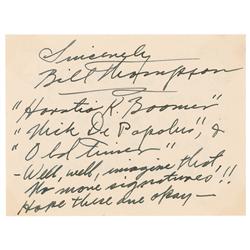 Sincerely
Bill Thompson
"Horatio K. Boomer"
"Nick De Popolus", &
"Old Timer"
- Well, well, imagine that,
No more signatures!!
Hope these are okay -